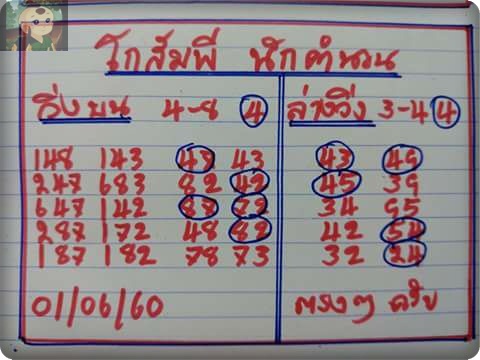 โกสัมพี นักคำนวน
วิ่งบน 4-8 4 ล่างวิ่ง 3-4 4
148 143 47 43 43 49
247 683 82 42 45 39
647 142 87 72 34 95
287 172 48 82 42 54
187 182 78 73 32 24
01/06/60 ตรงๆ ครับ